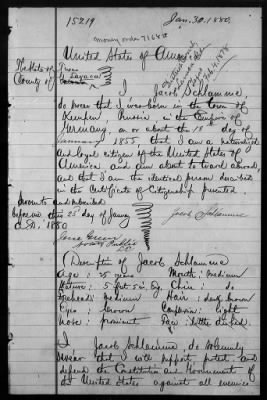 15219
Jan. 30, 1880.
money order
United States of America
The State of Texas
County of Lavaca
I Jacob Schlamme
do swear that I was born in the town of
Kempen, Prussia, in the Empire of
Germany, on or about the 15 day of
January 1855, that I am a naturalized
and loyal citizen of the United States of
America and am about to travel abroad,
and that I am the identical person described
in the Certificate of Citizenship presented
Sworn to and subscribed
before me this 25 day of January
A.D. 1880
Jacob Schlamme
Notary Public
Description of Jacob Schlamme
Age: 25 years Mouth: medium
Stature: 5 feet 5 in. Eng. Chin: do
Forehead: medium Hair: dark brown
Eyes: brown Complexion: light
Nose: prominent Face:
I Jacob Schlamme, do solemnly
swear that I will support, protect, and
defend the Constitution and Government of
the United States against all enemies